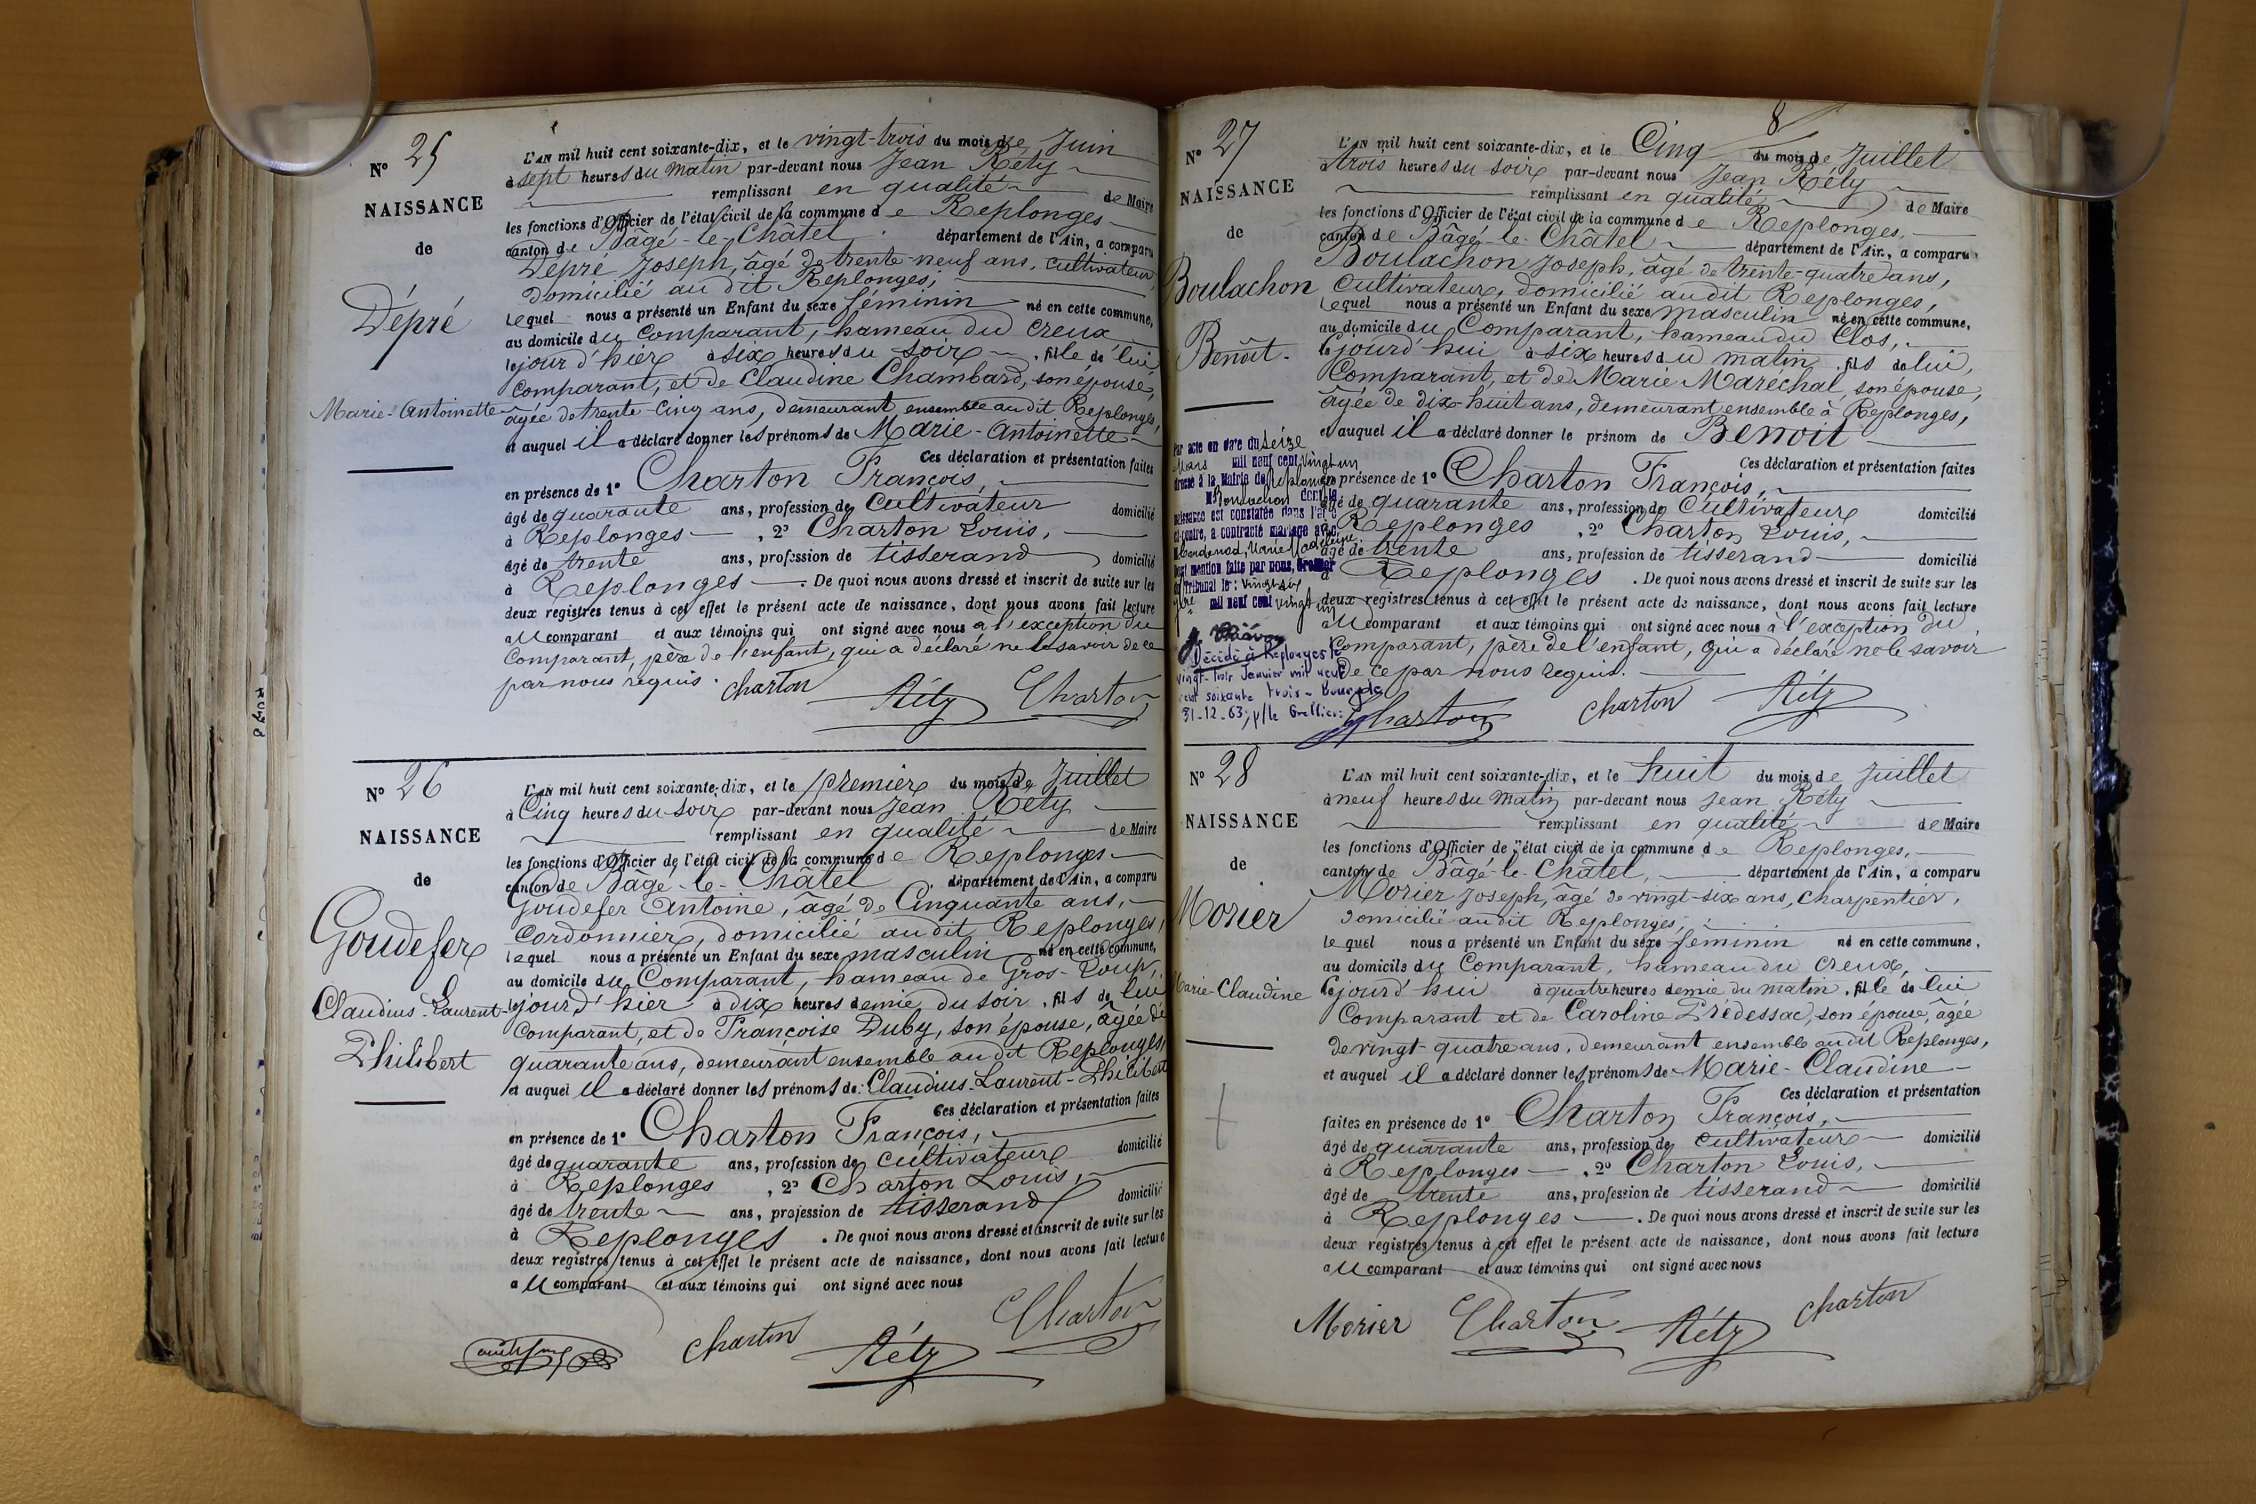 N° 25
NAISSANCE
de
Dépré
Marie-Antoinette
L'AN mil huit cent soixante-dix, et le vingt-trois du mois de Juin
à sept heures du matin par-devant nous Jean Réty
remplissant en qualité de Maire
les fonctions d'Officier de l'état civil de la commune de Replonges
canton de Bâgé-le-Châtel département de l'Ain, a comparu
Dépré Joseph, âgé de trente-neuf ans, cultivateur,
domicilié au dit Replonges,
lequel nous a présenté un Enfant du sexe féminin né en cette commune,
au domicile du comparant, hameau du creux
le jour d'hier à six heures du soir, fille de lui
comparant, et de Claudine Chambard, son épouse,
âgée de trente-cinq ans, demeurant ensemble au dit Replonges,
et auquel il a déclaré donner les prénoms de Marie-Antoinette
Ces déclaration et présentation faites
en présence de 1° Charton François,
âgé de quarante ans, profession de cultivateur domicilié
à Replonges, 2° Charton Louis,
âgé de trente ans, profession de tisserand domicilié
à Replonges. De quoi nous avons dressé et inscrit de suite sur les
deux registres tenus à cet effet le présent acte de naissance, dont nous avons fait lecture
au comparant et aux témoins qui ont signé avec nous à l'exception du
comparant, père de l'enfant, qui a déclaré ne le savoir de ce
par nous requis.
Charton Réty Charton
N° 26
NAISSANCE
de
Goudefer
Claudius-Laurent-
Philibert
L'AN mil huit cent soixante-dix, et le premier du mois de Juillet
à Cinq heures du soir par-devant nous Jean Réty
remplissant en qualité de Maire
les fonctions d'Officier de l'état civil de la commune de Replonges
canton de Bâgé-le-Châtel département de l'Ain, a comparu
Goudefer Antoine, âgé de Cinquante ans,
Cordonnier, domicilié au dit Replonges,
lequel nous a présenté un Enfant du sexe masculin né en cette commune,
au domicile du Comparant, hameau de Gros-Loup,
le jourd'hier à dix heures demie du soir, fils de lui
Comparant, et de Françoise Duby, son épouse, âgée de
quarante ans, demeurant ensemble au dit Replonges,
et auquel il a déclaré donner les prénoms de: Claudius-Laurent-Philibert
Ces déclaration et présentation faites
en présence de 1° Charton François,
âgé de quarante ans, profession de cultivateur domicilié
à Replonges, 2° Charton Louis,
âgé de trente ans, profession de tisserand domicilié
à Replonges. De quoi nous avons dressé et inscrit de suite sur les
deux registres tenus à cet effet le présent acte de naissance, dont nous avons fait lecture
au comparant et aux témoins qui ont signé avec nous
Charton Réty Charton
8
N° 27
NAISSANCE
de
Boulachon
Benoît.
Par acte en date du seize
Mars mil neuf cent vingt un
dressé à la Mairie de Replonges
M Boulachon dont la
naissance est constatée dans l'acte
ci-contre, a contracté mariage avec
Marie Madeleine
Dont mention faite par nous, Greffier
du Tribunal le: vingt six
mil neuf cent vingt un
Décédé à Replonges le
vingt-trois Janvier mil neuf
cent soixante trois - Bourg le
31-12-63; p/le Greffier:
L'AN mil huit cent soixante-dix, et le Cinq du mois de Juillet
à trois heures du soir par-devant nous Jean Réty
remplissant en qualité de Maire
les fonctions d'Officier de l'état civil de la commune de Replonges,
canton de Bâgé-le-Châtel département de l'Ain, a comparu
Boulachon Joseph, âgé de trente-quatre ans,
Cultivateur, domicilié audit Replonges,
lequel nous a présenté un Enfant du sexe masculin né en cette commune,
au domicile du Comparant, hameau du Clos,
le jourd'hui à six heures du matin, fils de lui,
Comparant, et de Marie Marechal, son épouse,
âgée de dix-huit ans, demeurant ensemble à Replonges,
et auquel il a déclaré donner le prénom de Benoit
Ces déclaration et présentation faites
en présence de 1° Charton François,
âgé de quarante ans, profession de Cultivateur domicilié
à Replonges, 2° Charton Louis,
âgé de trente ans, profession de tisserand domicilié
à Replonges. De quoi nous avons dressé et inscrit de suite sur les
deux registres tenus à cet effet le présent acte de naissance, dont nous avons fait lecture
au comparant et aux témoins qui ont signé avec nous à l'exception du
comparant, père de l'enfant, qui a déclaré ne le savoir
de ce par nous requis.
Charton Charton Réty
N° 28
NAISSANCE
de
Morier
Marie-Claudine
L'AN mil huit cent soixante-dix, et le huit du mois de Juillet
à neuf heures du matin par-devant nous Jean Réty
remplissant en qualité de Maire
les fonctions d'Officier de l'état civil de la commune de Replonges,
canton de Bâgé-le-Châtel, département de l'Ain, a comparu
Morier Joseph, âgé de vingt-six ans, charpentier,
domicilié audit Replonges,
lequel nous a présenté un Enfant du sexe féminin né en cette commune,
au domicile du Comparant, hameau du creux,
le jourd'hui à quatre heures demie du matin, fille de lui
Comparant et de Caroline Prédessac, son épouse, âgée
de vingt-quatre ans, demeurant ensemble audit Replonges,
et auquel il a déclaré donner les prénoms de Marie-Claudine
Ces déclaration et présentation
faites en présence de 1° Charton François,
âgé de quarante ans, profession de cultivateur domicilié
à Replonges, 2° Charton Louis,
âgé de trente ans, profession de tisserand domicilié
à Replonges. De quoi nous avons dressé et inscrit de suite sur les
deux registres tenus à cet effet le présent acte de naissance, dont nous avons fait lecture
au comparant et aux témoins qui ont signé avec nous
Morier Charton Réty Charton